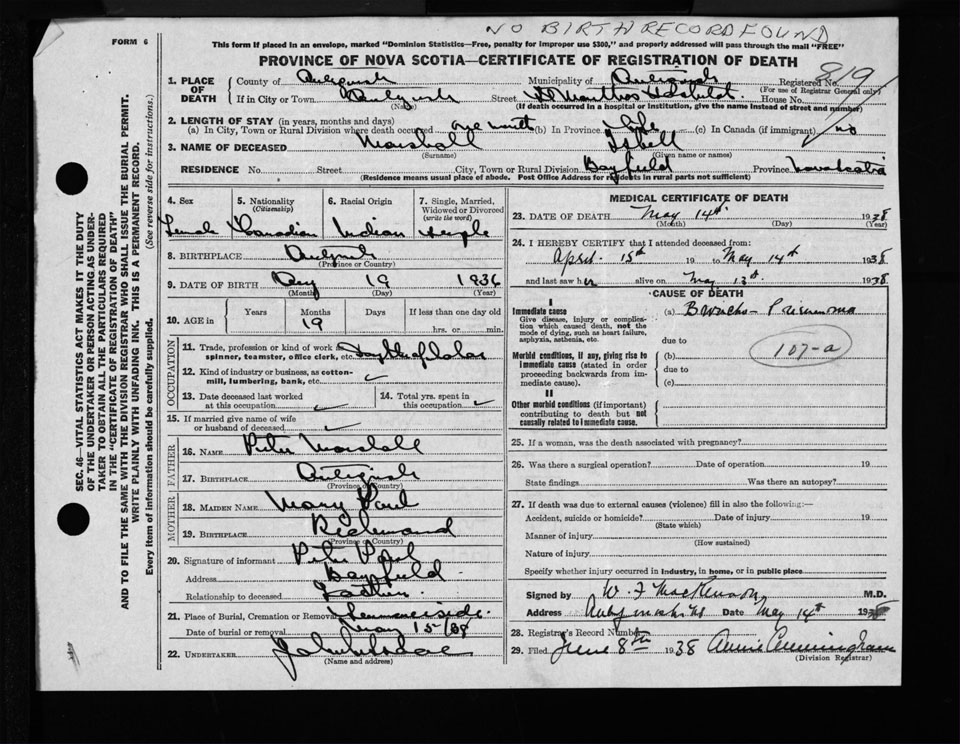 NO BIRTH RECORD FOUND
FORM 6
This form if placed in an envelope, marked "Dominion Statistics—Free, penalty for improper use $300," and properly addressed will pass through the mail "FREE"
PROVINCE OF NOVA SCOTIA—CERTIFICATE OF REGISTRATION OF DEATH
819
1. PLACE OF DEATH
County of Antigonish Municipality of Antigonish Registered No.
(For use of Registrar General only)
If in City or Town Antigonish Street St Marthas Hospital House No.
(Name) (If death occurred in a hospital or institution, give the name instead of street and number)
2. LENGTH OF STAY (in years, months and days)
(a) In City, Town or Rural Division where death occurred one month (b) In Province Life (c) In Canada (if immigrant) no
3. NAME OF DECEASED Marshall Isbell
(Surname) (Given name or names)
RESIDENCE No. Street City, Town or Rural Division Bayfield Province Nova Scotia
(Residence means usual place of abode. Post Office Address for residents in rural parts not sufficient)
4. Sex 5. Nationality (Citizenship) 6. Racial Origin 7. Single, Married, Widowed or Divorced (write the word)
Female Canadian Indian Single
8. BIRTHPLACE Antigonish
(Province or Country)
9. DATE OF BIRTH 19 1936
(Month) (Day) (Year)
10. AGE in Years Months Days If less than one day old
19 hrs. or min.
OCCUPATION
11. Trade, profession or kind of work as spinner, teamster, office clerk, etc.
12. Kind of industry or business, as cotton-mill, lumbering, bank, etc.
13. Date deceased last worked at this occupation
14. Total yrs. spent in this occupation
15. If married give name of wife or husband of deceased
FATHER
16. NAME Peter Marshall
17. BIRTHPLACE Antigonish
(Province or Country)
MOTHER
18. MAIDEN NAME Mary Paul
19. BIRTHPLACE Richmond
(Province or Country)
20. Signature of informant Peter Paul
Address Bayfield
Relationship to deceased
21. Place of Burial, Cremation or Removal Summerside
Date of burial or removal May 15/38
22. UNDERTAKER
(Name and address)
MEDICAL CERTIFICATE OF DEATH
23. DATE OF DEATH May 14th 1938
(Month) (Day) (Year)
24. I HEREBY CERTIFY that I attended deceased from:
April 15th 19 to May 14th 1938
and last saw her alive on May 13th 1938
CAUSE OF DEATH
I
Immediate cause
Give disease, injury or complication which caused death, not the mode of dying, such as heart failure, asphyxia, asthenia, etc.
(a) Broncho-Pneumonia
due to
107-a
Morbid conditions, if any, giving rise to immediate cause (stated in order proceeding backwards from immediate cause).
(b)
due to
(c)
II
Other morbid conditions (if important) contributing to death but not causally related to immediate cause.
25. If a woman, was the death associated with pregnancy?
26. Was there a surgical operation? Date of operation 19
State findings Was there an autopsy?
27. If death was due to external causes (violence) fill in also the following:—
Accident, suicide or homicide? Date of injury 19
(State which)
Manner of injury
(How sustained)
Nature of injury
Specify whether injury occurred in industry, in home, or in public place
Signed by W. F MacKinnon M.D.
Address Antigonish NS Date May 14th 1938
28. Registrar's Record Number
29. Filed June 8th 1938 Annie Cunningham
(Division Registrar)
SEC. 46—VITAL STATISTICS ACT MAKES IT THE DUTY
OF THE UNDERTAKER OR PERSON ACTING AS UNDER-
TAKER TO OBTAIN ALL THE PARTICULARS REQUIRED
IN THE "CERTIFICATE OF REGISTRATION OF DEATH"
AND TO FILE THE SAME WITH THE DIVISION REGISTRAR WHO SHALL ISSUE THE BURIAL PERMIT.
WRITE PLAINLY WITH UNFADING INK. THIS IS A PERMANENT RECORD.
Every item of information should be carefully supplied. (See reverse side for instructions.)